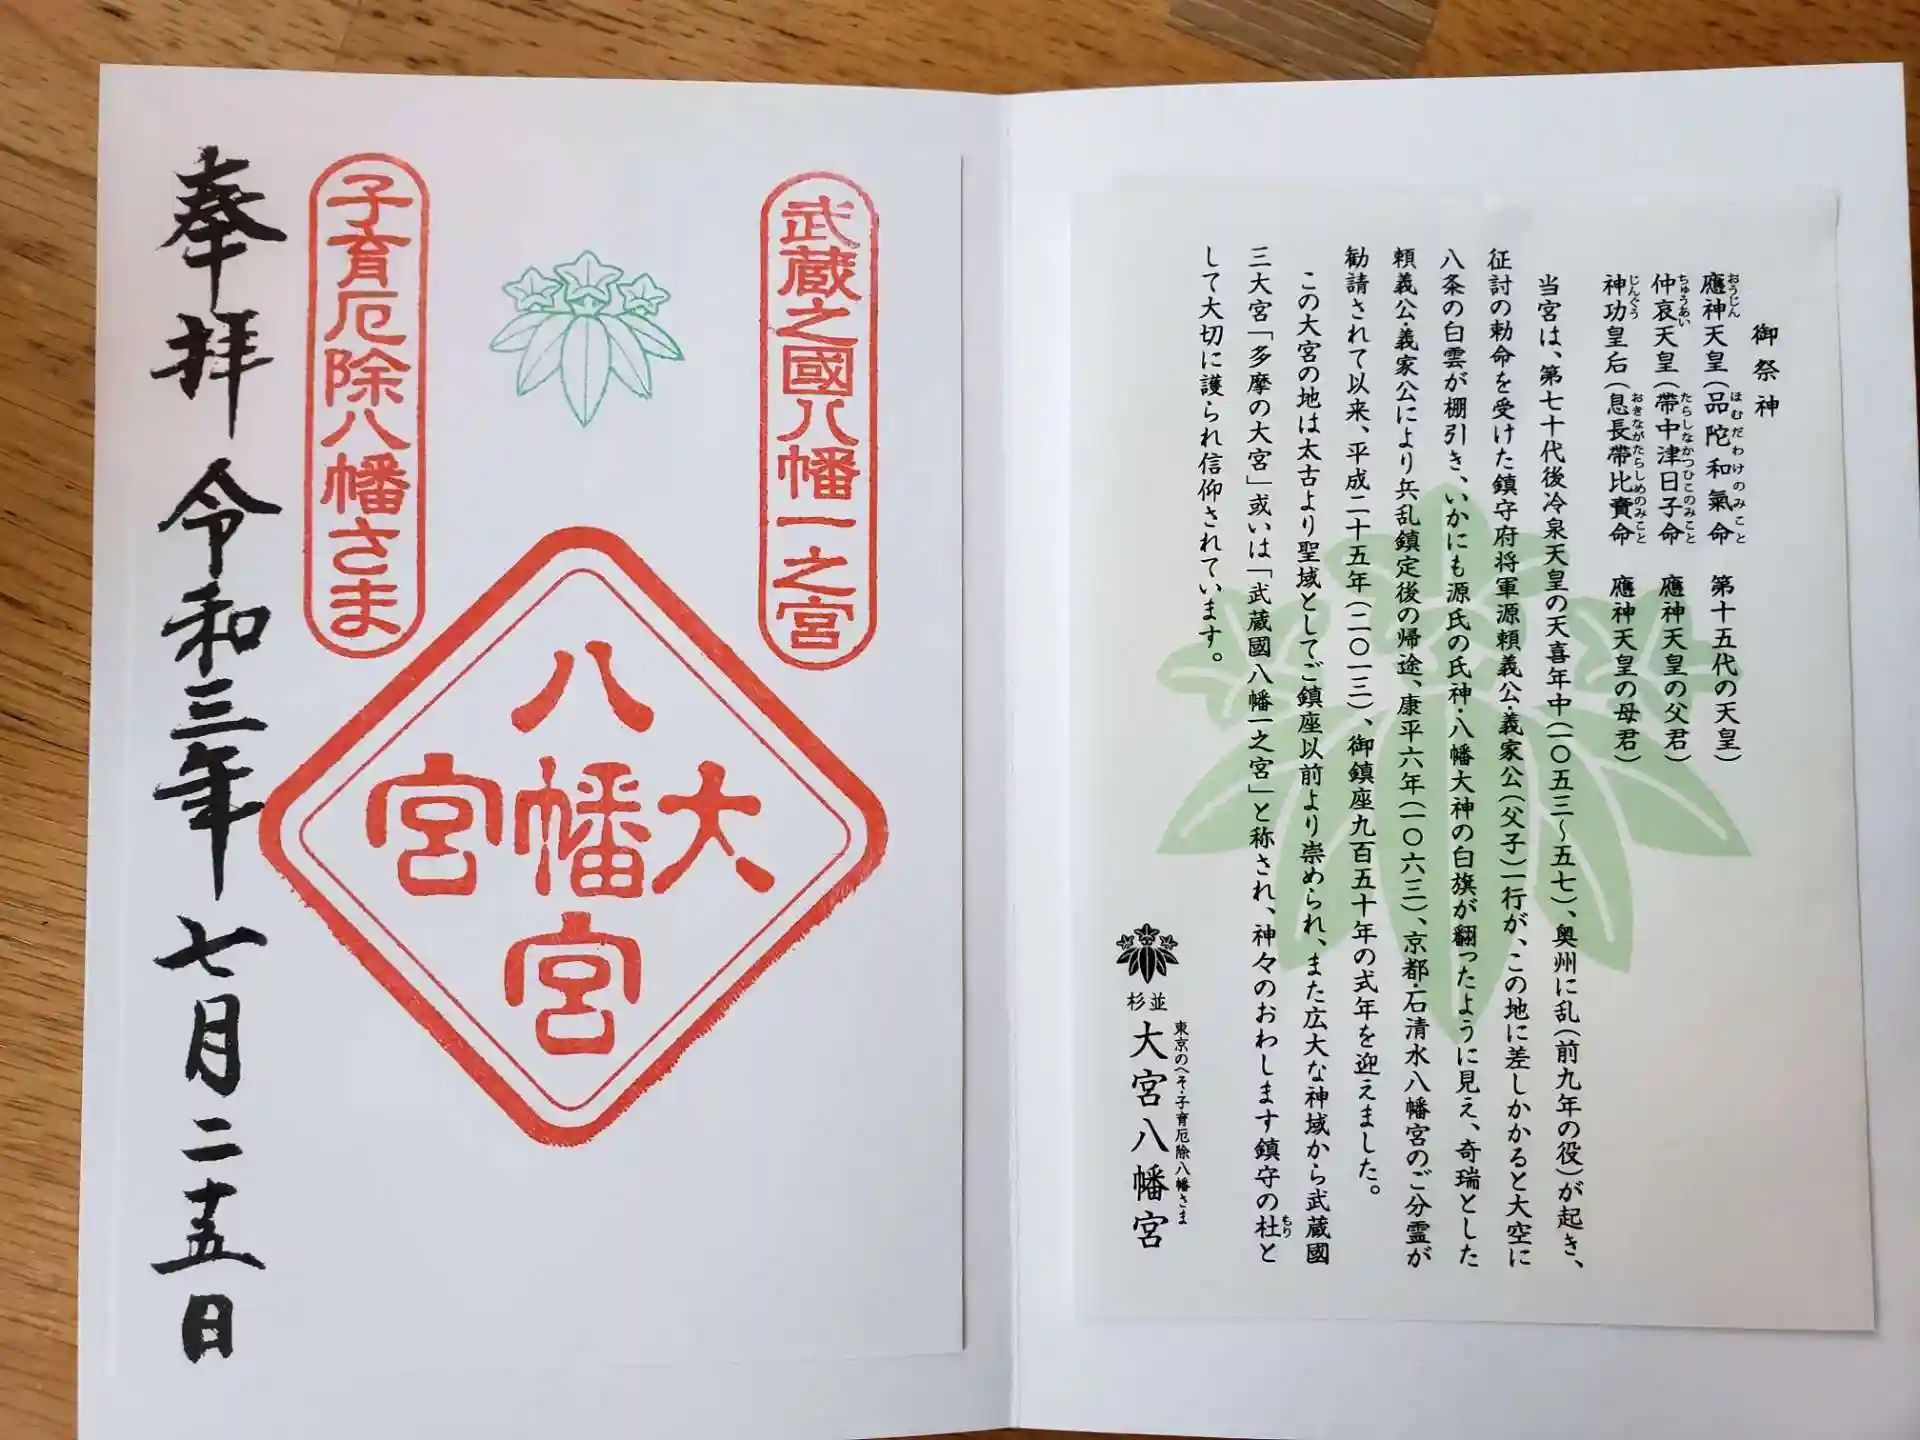 御祭神
應神天皇(品陀和氣命 第十五代の天皇)
おうじん ほむだわけのみこと
仲哀天皇(帶中津日子命 應神天皇の父君)
ちゅうあい たらしなかつひこのみこと
神功皇后(息長帶比賣命 應神天皇の母君)
じんぐう おきながたらしひめのみこと
当宮は、第七十代後冷泉天皇の天喜年中(一〇五三〜五七)、奥州に乱(前九年の役)が起き、
征討の勅命を受けた鎮守府将軍源頼義公・義家公(父子)一行が、この地に差しかかると大空に
八条の白雲が棚引き、いかにも源氏の氏神・八幡大神の白旗が翻ったように見え、奇瑞とした
頼義公・義家公により兵乱鎮定後の帰途、康平六年(一〇六三)、京都・石清水八幡宮のご分霊が
勧請されて以来、平成二十五年(二〇一三)、御鎮座九百五十年の式年を迎えました。
この大宮の地は太古より聖域としてご鎮座以前より崇められ、また広大な神域から武蔵國
三大宮「多摩の大宮」或いは「武蔵國八幡一之宮」と称され、神々のおわします鎮守の杜と
もり
して大切に護られ信仰されています。
東京のへそ・子育厄除八幡さま
杉並
大宮八幡宮
武蔵之國八幡一之宮
大
八幡宮
宮
子育厄除八幡さま
奉拝 令和三年七月二十五日